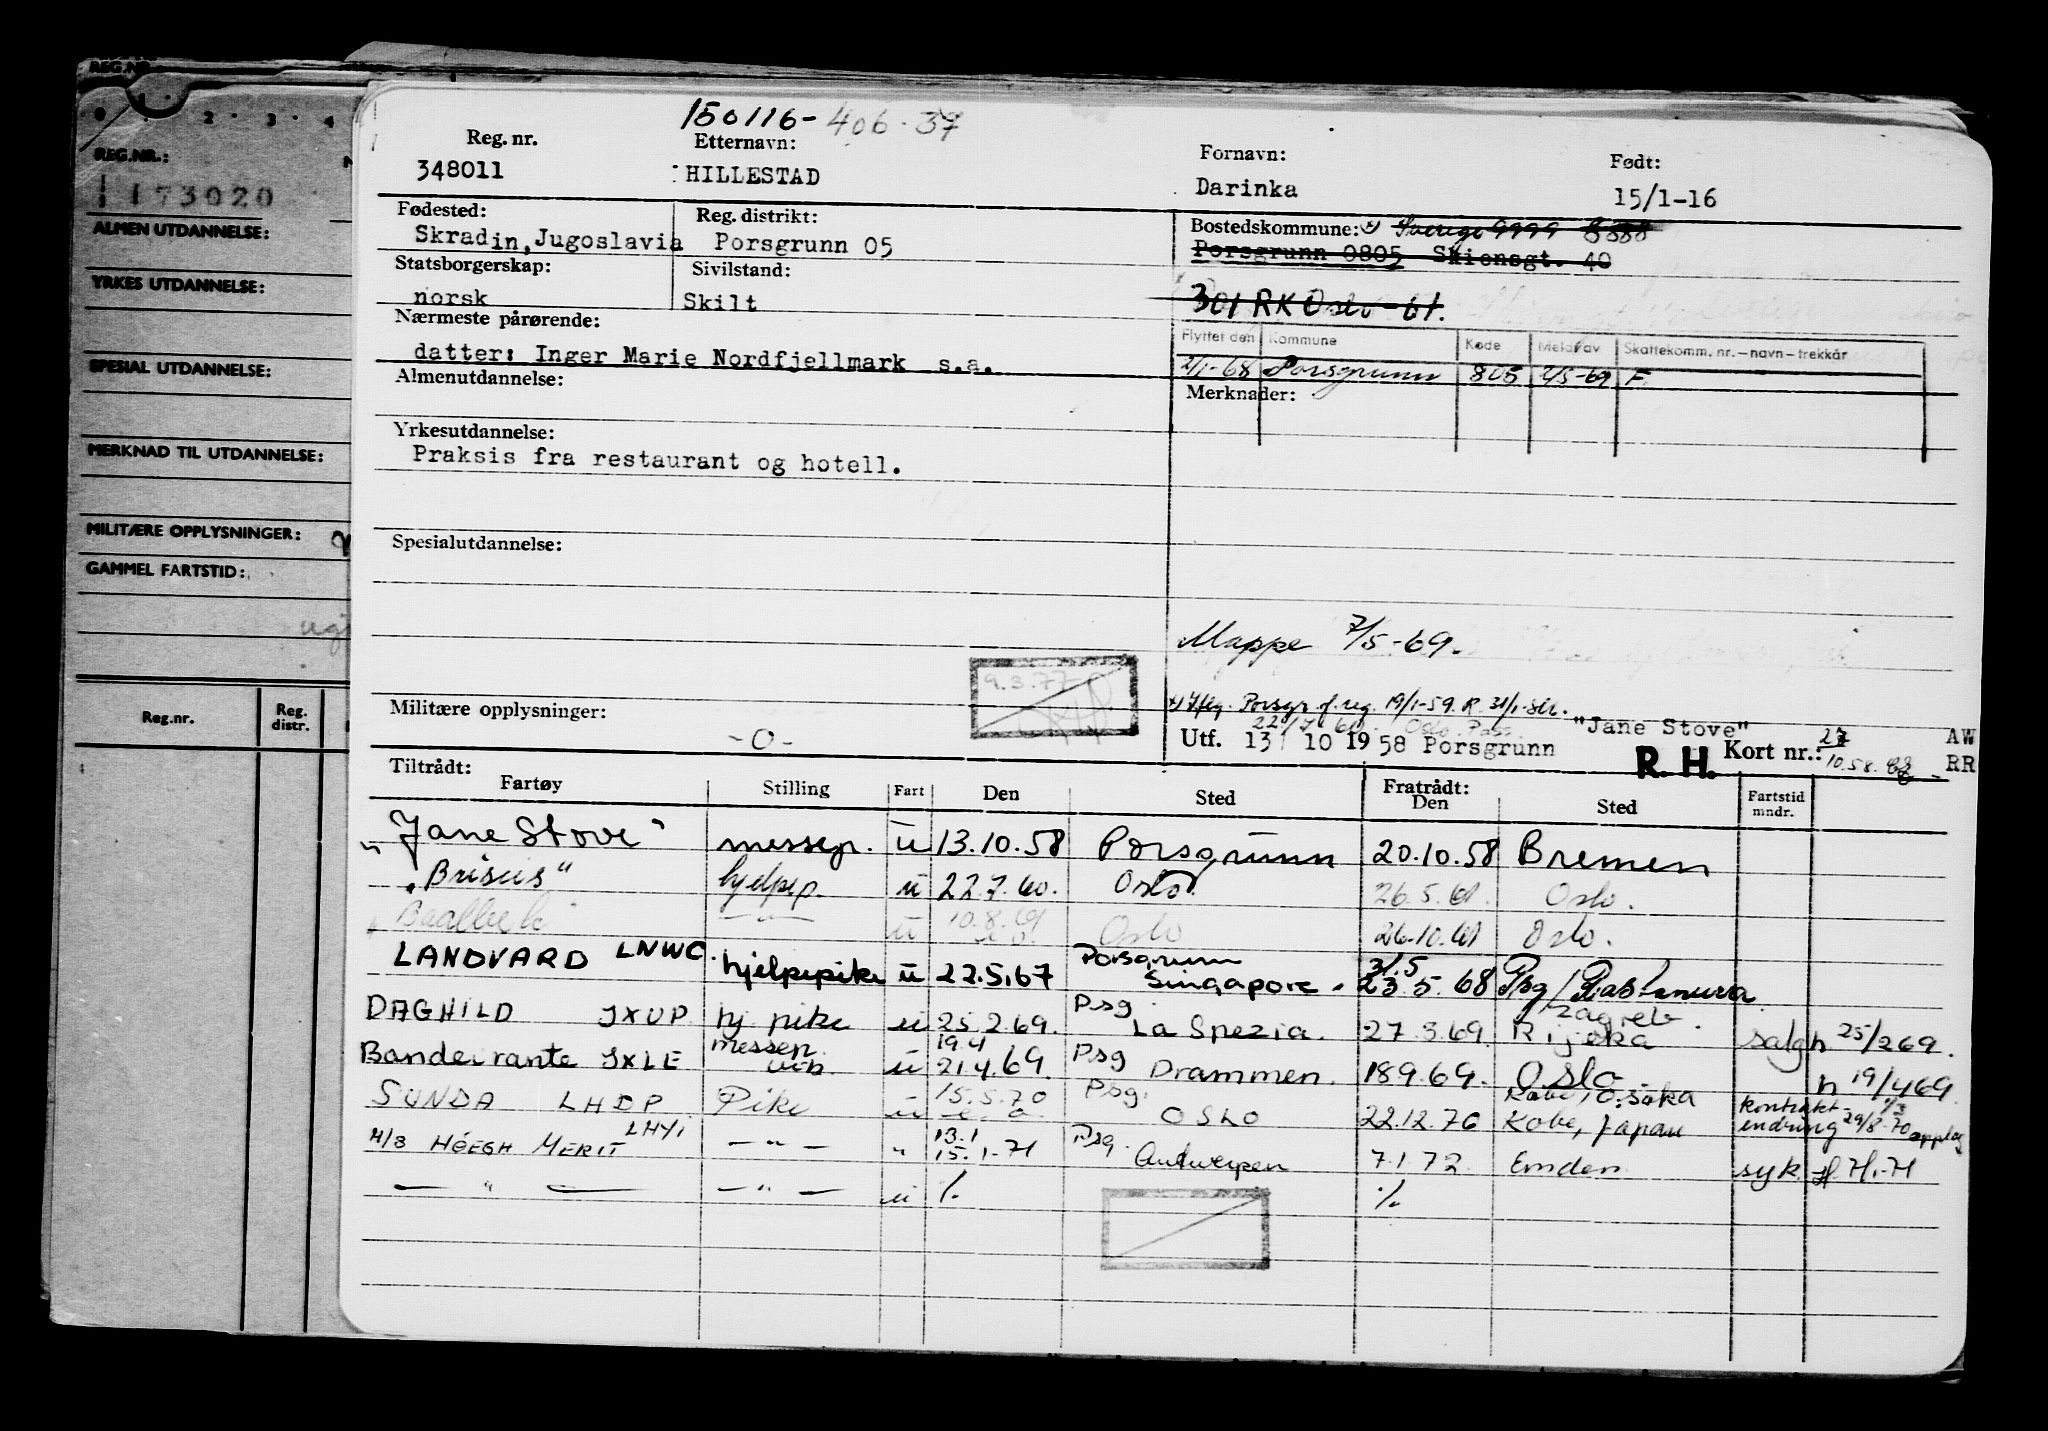 REG.NR.
0 1 2 3 4
REG.NR.:
173020
ALMEN UTDANNELSE:
YRKES UTDANNELSE:
SPESIAL UTDANNELSE:
MERKNAD TIL UTDANNELSE:
MILITÆRE OPPLYSNINGER:
GAMMEL FARTSTID:
Reg.nr. Reg. distr.
150116-406.37
Reg. nr. Etternavn: Fornavn: Født:
348011 HILLESTAD Darinka 15/1-16
Fødested: Reg. distrikt: Bostedskommune: Sverige 9999
Skradin, Jugoslavia Porsgrunn 05 Porsgrunn 0805 Skiensgt. 40
Statsborgerskap: Sivilstand:
norsk Skilt 301 RK Oslo-61.
Nærmeste pårørende: Flyttet den Kommune Kode Meld. av Skattekomm. nr.-navn-trekkår
datter: Inger Marie Nordfjellmark s.a. 2/1-68 Porsgrunn 805 2/5-69 F
Almenutdannelse: Merknader:
Yrkesutdannelse:
Praksis fra restaurant og hotell.
Spesialutdannelse:
Mappe 7/5-69.
9.3.77
Militære opplysninger: Porsgr. f. reg. 19/1-59. R. 31/1-
-0- 22/7 60 Oslo Pass
Utf. 13/10 1958 Porsgrunn "Jane Stove" R. H. Kort nr.: 27 10.58. AW RR
Tiltrådt: Fratrådt:
Fartøy Stilling Fart Den Sted Den Sted Fartstid mndr.
"Jane Stove" messep. u 13.10.58 Porsgrunn 20.10.58 Bremen
"Brisus" hjelpep. u 22.7.60. Oslo. 26.5.61. Oslo.
"Baalbek" -"- u 10.8.61 Oslo 26.10.61 Oslo.
LANDVARD LNWC. hjelpepike u 22.5.67 Porsgrunn Singapore. 31.5 23.5.68 Psg/Rastanura
DAGHILD JXUP hj pike u 25.2.69. Psg La Spezia. 27.3.69. Zagreb. Rijeka salg h 25/269.
Bandeirante JXLE messep. u 19.4 21.4.69. Psg Drammen. 18.9.69. Oslo. h 19/469
SUNDA LHDP Pike u 15.5.70 Psg. OSLO 22.12.70 Kobe, Osaka Kobe, Japan kontrakt endring 29/8-70
M/S HÖEGH MERIT LHYI -"- " 13.1 15.1-71 Psg. Antwerpen 7.1.72 Emden. syk.
-"- -"- u %. %.